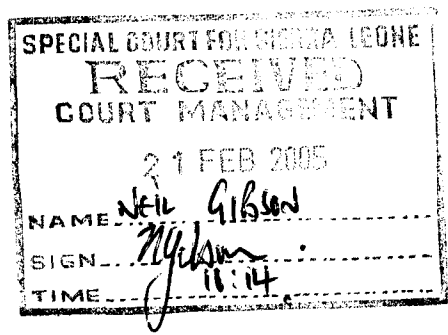 SPECIAL COURT FOR SIERRA LEONE
RECEIVED
COURT MANAGEMENT
21 FEB 2005
NAME NEIL GIBSON
SIGN
TIME 16:14